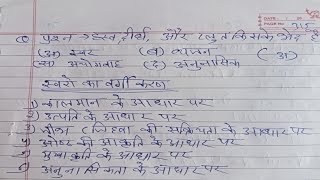 प्रश्न ह्रस्व, दीर्घ, और प्लुत किसके भेद है
(अ) स्वर (ब) व्यंजन (अ)
(स) अयोगवाह (द) अनुनासिक
स्वरो का वर्गीकरण
1) कालमान के आधार पर
2) उत्पति के आधार पर
3) जीभ (जिह्वा) की सक्रियता के आधार पर
4) ओष्ठ की आकृति के आधार पर
5) मुखाकृति के आधार पर
अनुनासिकता के आधार पर